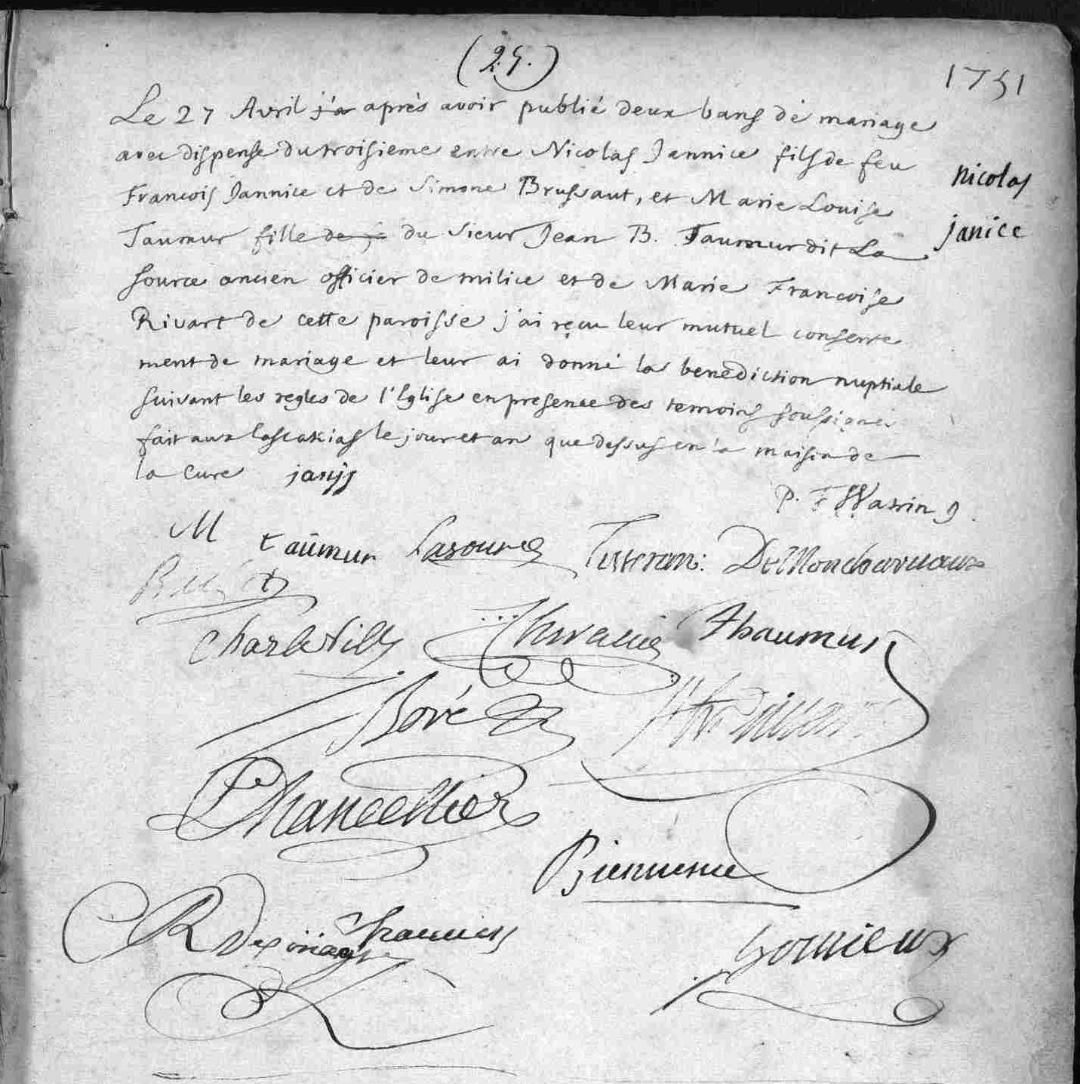 (25.)
1751
Le 27 Avril j'a après avoir publié deux bans de mariage
avec dispense du troisieme entre Nicolas Jannice fils de feu
Francois Jannice et de Simone Brussaut, et Marie Louise
Taumur fille de du Sieur Jean B. Taumur dit La
source ancien officier de milice et de Marie Francoise
Rivart de cette paroisse j'ai reçu leur mutuel consente
ment de mariage et leur ai donné la benediction nuptiale
suivant les regles de l'Eglise en presence des temoins soussignés
fait aux Cascakias le jour et an que dessus en la maison de
la Cure janis
nicolas
janice
P. F Watrin J.
M taumur Lasource
Charleville Chevalier Thaumur
Boré
Chancellier
Bienvenue